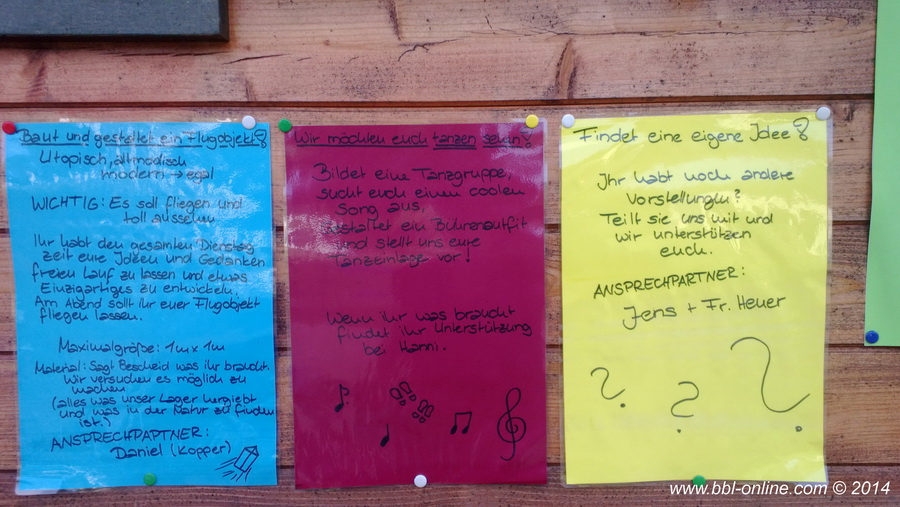 Baut und gestaltet ein Flugobjekt!
Utopisch, altmodisch
modern → egal
WICHTIG: Es soll fliegen und
toll aussehen
Ihr habt den gesamten Dienstag
Zeit eure Ideen und Gedanken
freien Lauf zu lassen und etwas
Einzigartiges zu entwickeln.
Am Abend sollt ihr euer Flugobjekt
fliegen lassen.
Maximalgröße: 1m x 1m
Material: Sagt Bescheid was ihr braucht.
Wir versuchen es möglich zu
machen
(alles was unser Lager hergiebt
und was in der Natur zu finden
ist.)
ANSPRECHPARTNER:
Daniel (Kopper)
Wir möchten euch tanzen sehen!
Bildet eine Tanzgruppe,
sucht euch einen coolen
Song aus,
gestaltet ein Bühnenoutfit
und stellt uns eure
Tanzeinlage vor!
Wenn ihr was braucht
findet ihr Unterstützung
bei Hanni.
Findet eine eigene Idee!
Ihr habt noch andere
Vorstellungen?
Teilt sie uns mit und
wir unterstützen
euch.
ANSPRECHPARTNER:
Jens + Fr. Heuer
? ? ?
www.bbl-online.com © 2014